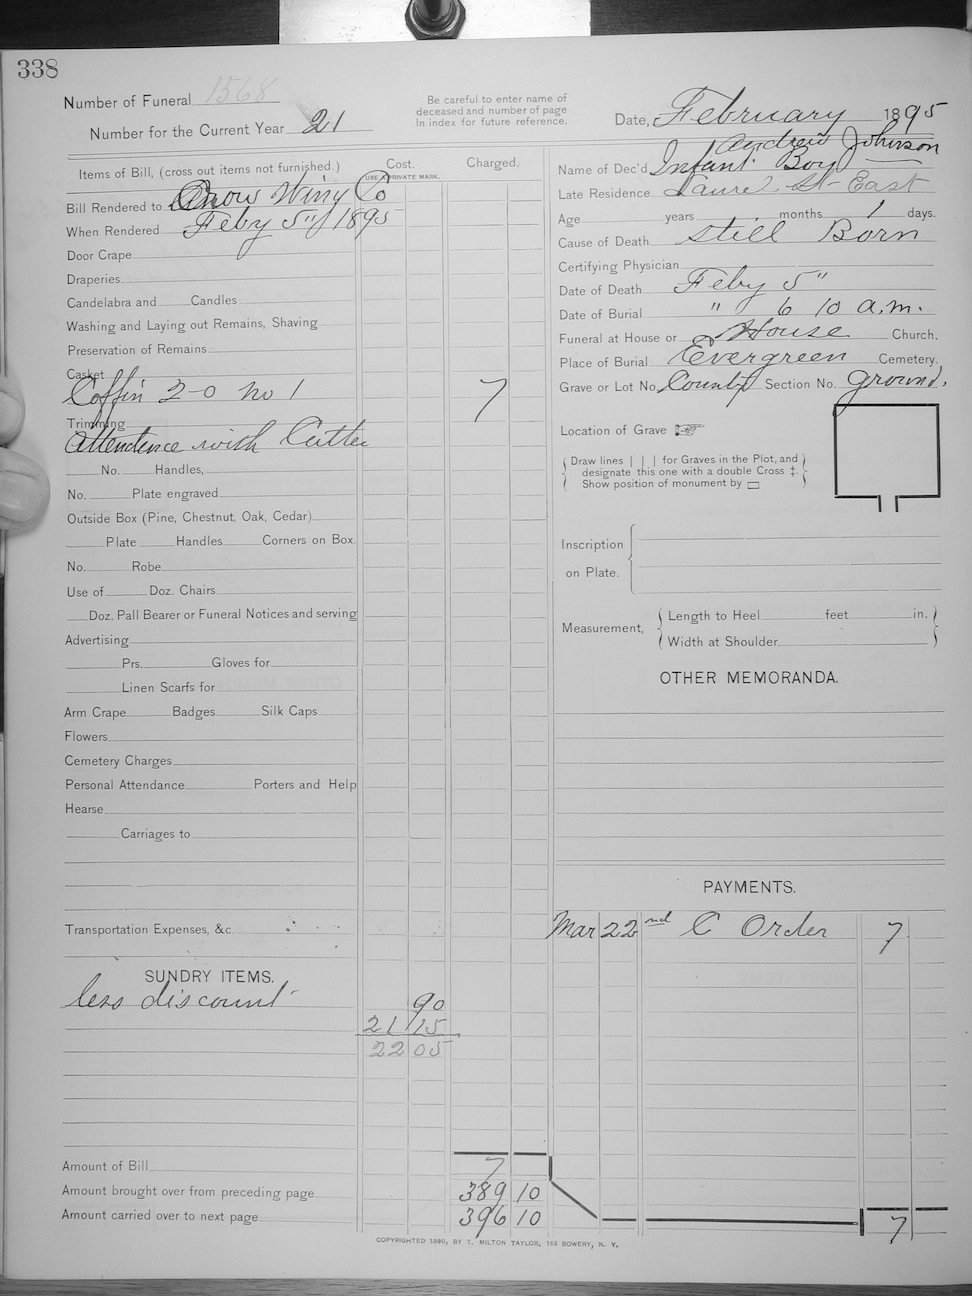 338
Number of Funeral 1568
Number for the Current Year 21
Be careful to enter name of
deceased and number of page
in index for future reference.
Date, February 1895
Items of Bill, (cross out items not furnished.)
Cost.
USE PRIVATE MARK.
Charged.
Bill Rendered to Wing Co
When Rendered Feby 5" 1895
Door Crape
Draperies
Candelabra and Candles
Washing and Laying out Remains, Shaving
Preservation of Remains
Casket
Coffin 2-0 no 1 7
Trimming
Attendence with Cutter
No. Handles,
No. Plate engraved
Outside Box (Pine, Chestnut, Oak, Cedar)
Plate Handles Corners on Box.
No. Robe
Use of Doz. Chairs
Doz. Pall Bearer or Funeral Notices and serving
Advertising
Prs. Gloves for
Linen Scarfs for
Arm Crape Badges Silk Caps
Flowers
Cemetery Charges
Personal Attendance Porters and Help
Hearse
Carriages to
Transportation Expenses, &c.
SUNDRY ITEMS.
less discount 90
21 15
22 05
Amount of Bill 7
Amount brought over from preceding page 389 10
Amount carried over to next page 396 10
Andrew Johnson
Name of Dec'd Infant Boy
Late Residence Laurel St East
Age years months 1 days.
Cause of Death still Born
Certifying Physician
Date of Death Feby 5"
Date of Burial " 6 10 a.m.
Funeral at House or House Church.
Place of Burial Evergreen Cemetery.
Grave or Lot No. County Section No. ground.
Location of Grave
Draw lines | | | for Graves in the Plot, and
designate this one with a double Cross ‡.
Show position of monument by ▭
Inscription
on Plate.
Measurement, Length to Heel feet in.
Width at Shoulder
OTHER MEMORANDA.
PAYMENTS.
Mar 22nd C Order 7
7
COPYRIGHTED 1890, BY T. MILTON TAYLOR, 163 BOWERY, N. Y.